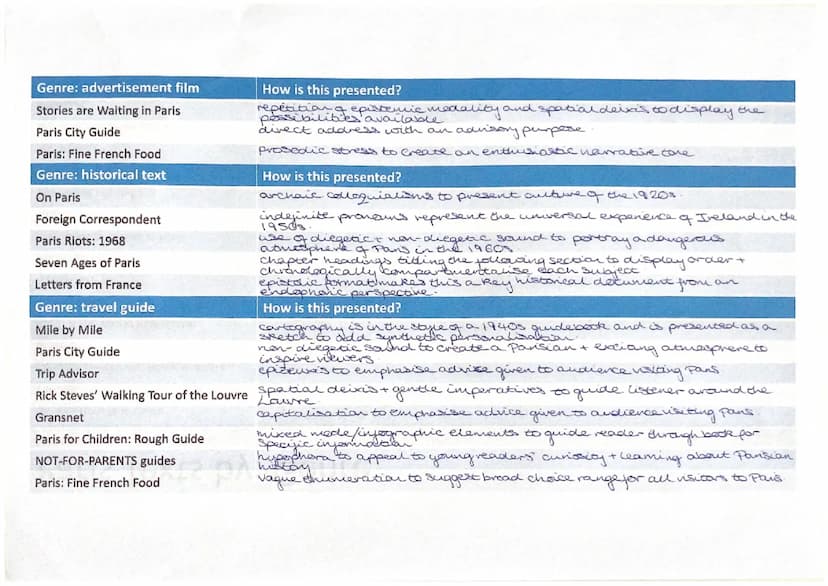 Genre: advertisement film How is this presented?
Stories are Waiting in Paris repetition of epistemic modality and spatial deixis to display the
possibilities available
Paris City Guide direct address with an advisory purpose.
Paris: Fine French Food prosodic stress to create an enthusiastic narrative tone
Genre: historical text How is this presented?
On Paris archaic colloquialisms to present culture of the 1920s.
Foreign Correspondent indefinite pronouns represent the universal experience of Ireland in the
1950s.
Paris Riots: 1968 use of diegetic + non-diegetic sound to portray a dangerous
atmosphere of Paris in the 1960s
Seven Ages of Paris chapter headings titling the following section to display order +
chronologically compartmentalise each subject
Letters from France epistolic format makes this a key historical document from an
endophoric perspective.
Genre: travel guide How is this presented?
Mile by Mile cartography is in the style of a 1940s guidebook and is presented as a
sketch to add synthetic personalisation.
Paris City Guide non-diegetic sound to create a Parisian + exciting atmosphere to
inspire viewers
Trip Advisor epizeuxis to emphasise advice given to audience visiting Paris.
Rick Steves' Walking Tour of the Louvre spatial deixis + gentle imperatives to guide listener around the
Louvre
Gransnet capitalisation to emphasise advice given to audience visiting Paris.
Paris for Children: Rough Guide mixed mode/infographic elements to guide reader through book for
specific information
NOT-FOR-PARENTS guides hypophora to appeal to young readers' curiosity + learning about Parisian
history
Paris: Fine French Food vague enumeration to suggest broad choice range for all visitors to Paris